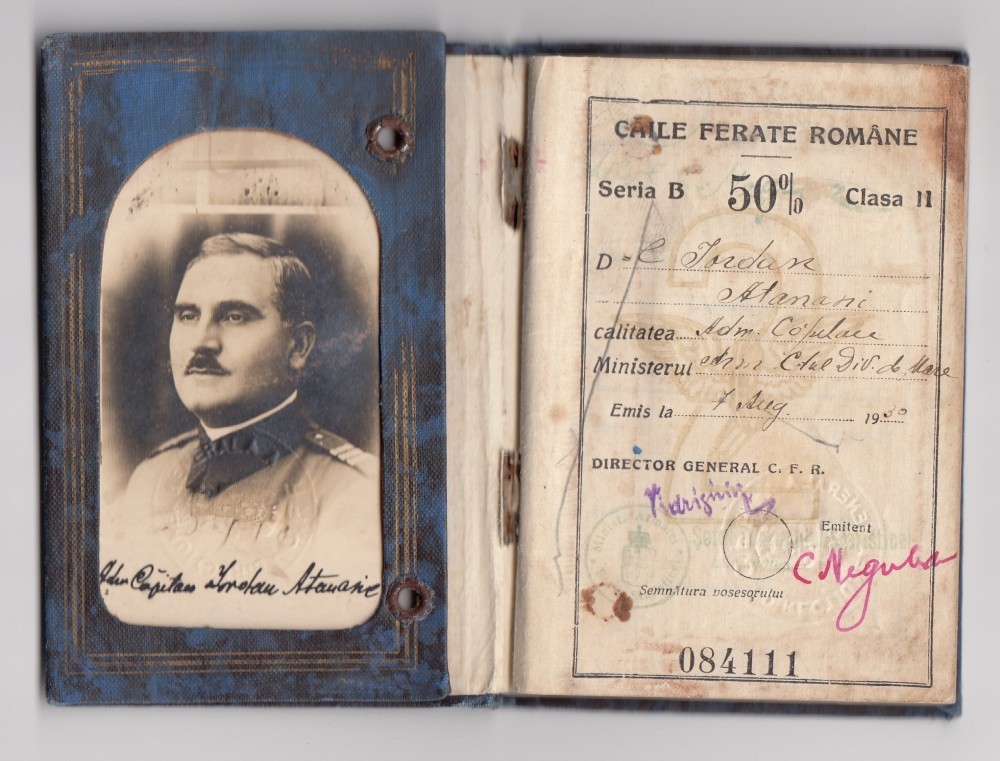 Adm Căpitan Iordan Atanasie
CĂILE FERATE ROMÂNE
Seria B 50% Clasa II
D-l Iordan
Atanasie
calitatea Adm. Căpitan
Ministerul Arm Ctul Div. de Mare
Emis la 7 Aug. 1930
DIRECTOR GENERAL C. F. R.
Emitent
C Negulea
Semnătura posesorului
084111